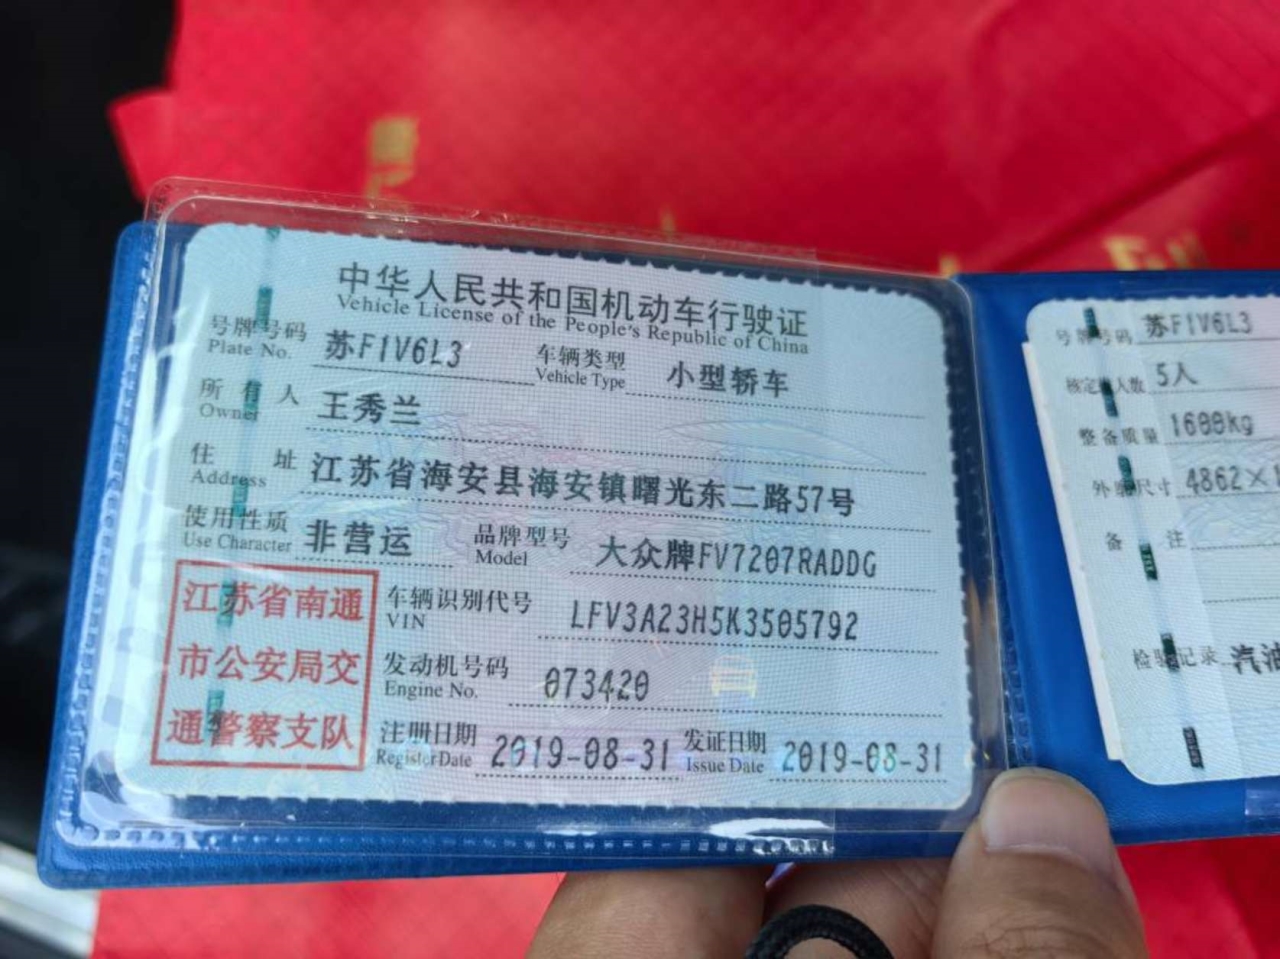 中华人民共和国机动车行驶证
Vehicle License of the People's Republic of China
号牌号码 苏F1V6L3 车辆类型 小型轿车
Plate No. Vehicle Type
所有人 王秀兰
Owner
住址 江苏省海安县海安镇曙光东二路57号
Address
使用性质 非营运 品牌型号 大众牌FV7207RADDG
Use Character Model
江苏省南通
市公安局交
通警察支队
车辆识别代号 LFV3A23H5K3505792
VIN
发动机号码 073420
Engine No.
注册日期 2019-08-31 发证日期 2019-08-31
Register Date Issue Date
号牌号码 苏F1V6L3
核定载人数 5人
整备质量 1600kg
外廓尺寸 4862×
备注
检验记录 汽油